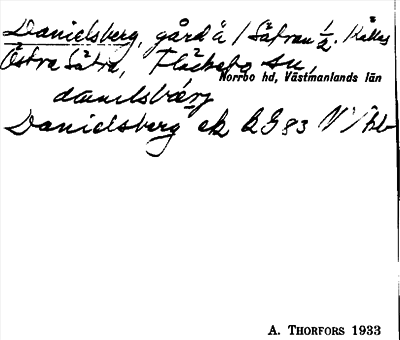 Danielsberg, gård å / Sätran 1/2. Kallas
Östra Sätra, Fläckebo sn,
Norrbo hd, Västmanlands län
danɩlsbærj
Danielsberg ek BG 83
A. THORFORS 1933